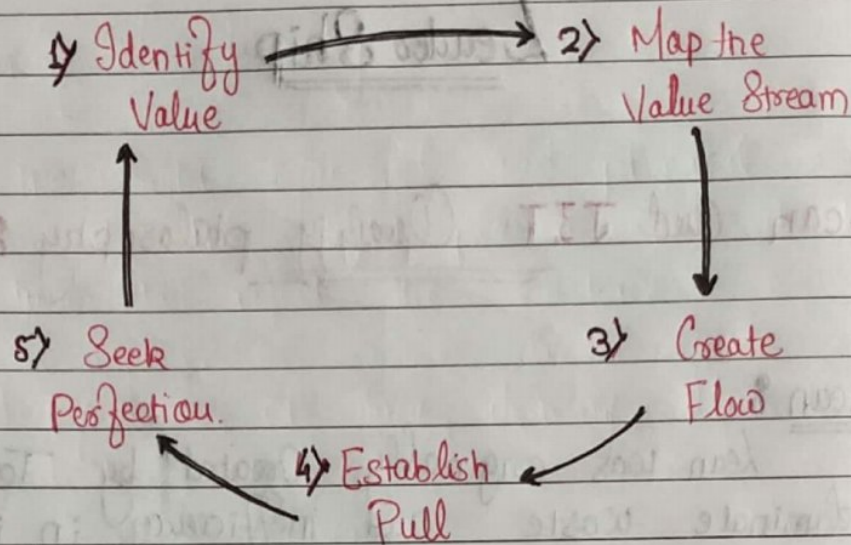 1) Identify
Value
2) Map the
Value Stream
3) Create
Flow
4) Establish
Pull
5) Seek
Perfection.